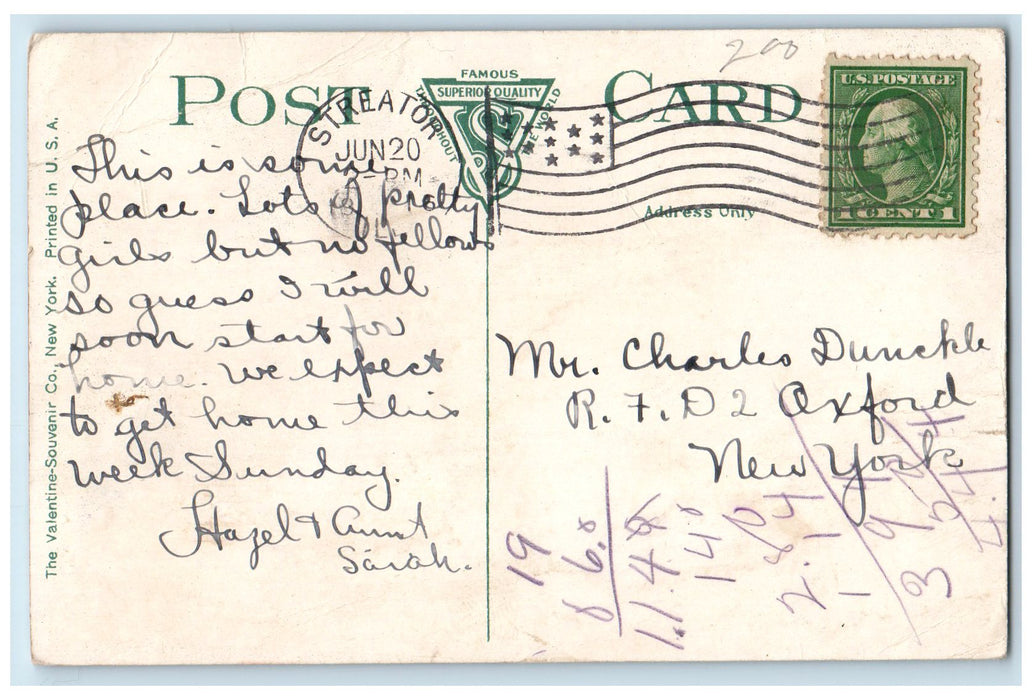 200
POST CARD
FAMOUS
SUPERIOR QUALITY
THROUGHOUT THE WORLD
STREATOR
JUN 20
PM
U.S. POSTAGE
1 CENT 1
Address Only
The Valentine-Souvenir Co., New York. Printed in U. S. A.
This is some
place. Lots of pretty
girls but no fellows
so guess I will
soon start for
home. We expect
to get home this
week Sunday.
Hazel & Aunt
Sarah.
Mr. Charles Dunckle
R. F. D 2 Oxford
New York
19